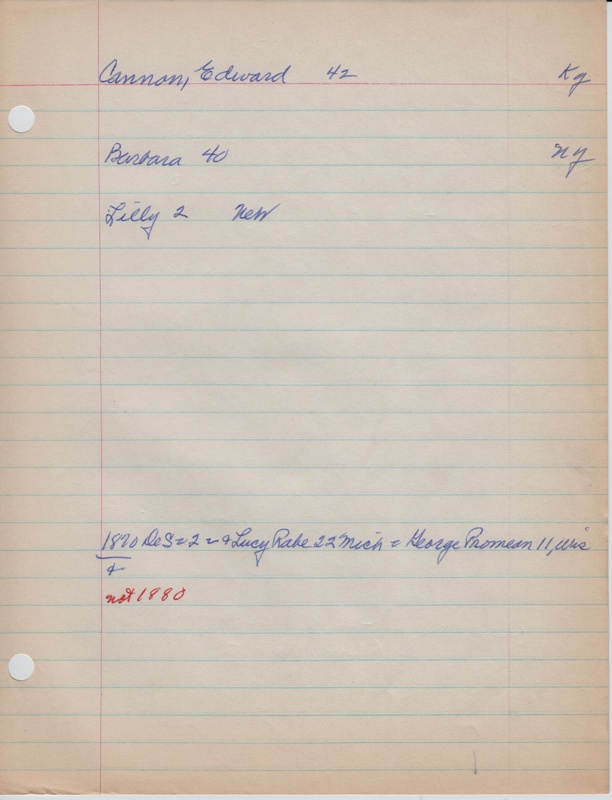 Cannon, Edward 42 Ky
Barbara 40 NY
Lilly 2 New
1870 DeS = 2 = & Lucy Rabe 22 Mich = George Promean 11, Wis
4
not 1880